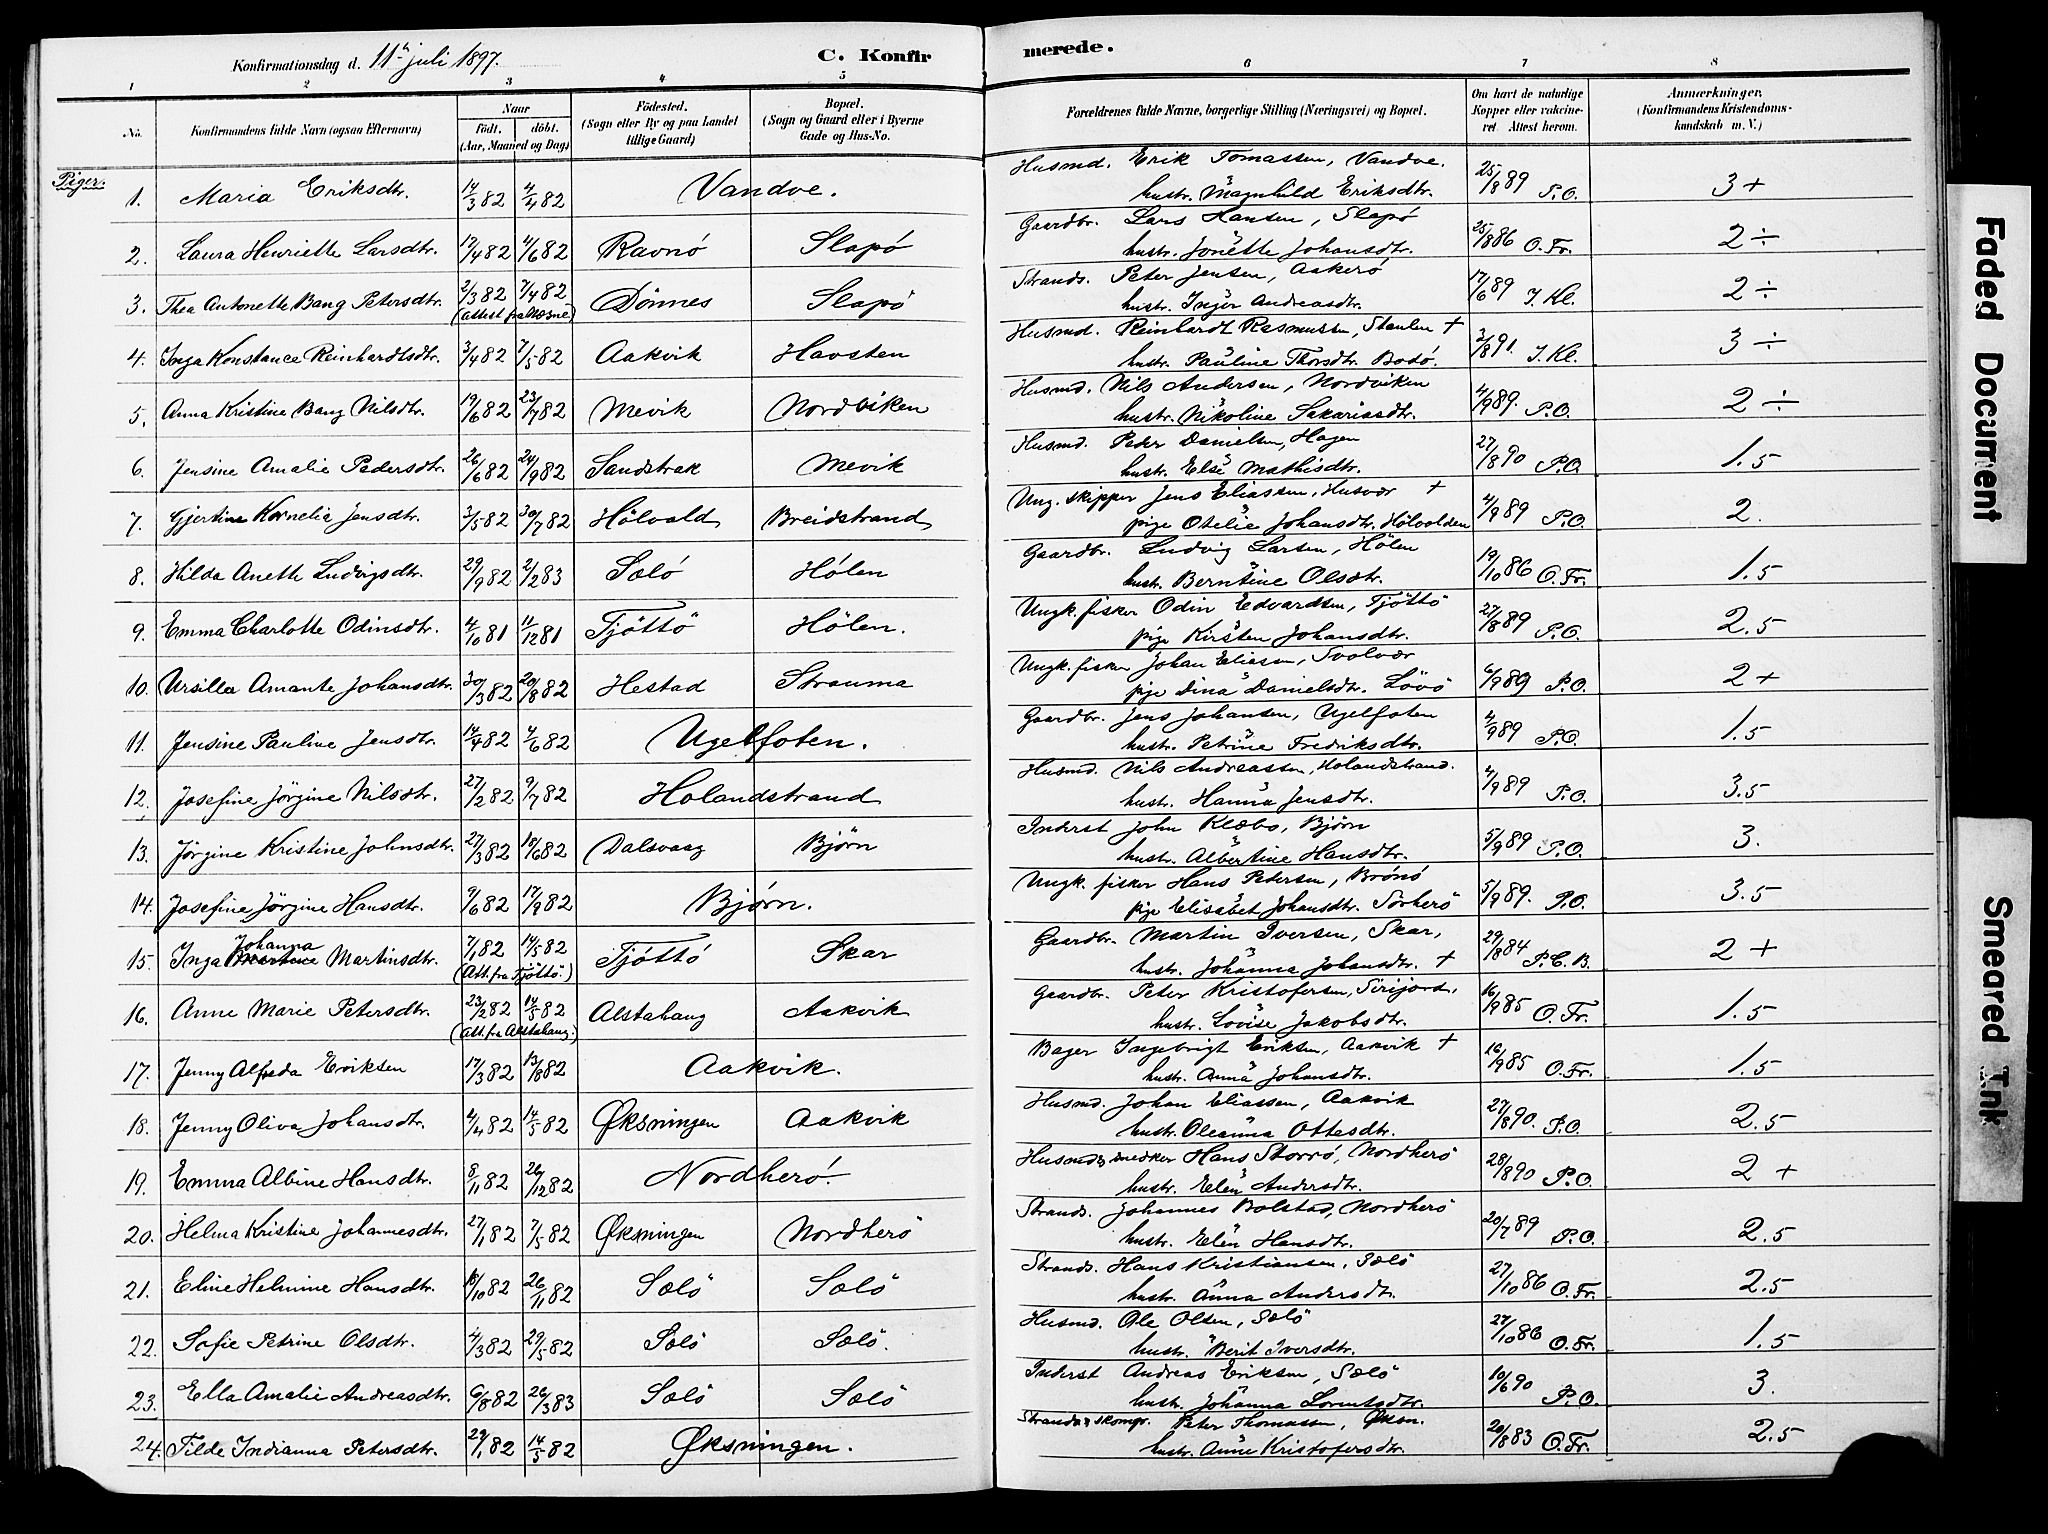 Konfirmationsdag d. 11te juli 1897.
C. Konfirmerede.
1 2 3 4 5 6 7 8
No. Konfirmandens fulde Navn (ogsaa Efternavn) Naar födt. döbt. (Aar, Maaned og Dag) Födested. (Sogn eller By og paa Landet tillige Gaard) Bopæl. (Sogn og Gaard eller i Byerne Gade og Hus-No. Forældrenes fulde Navne, borgerlige Stilling (Næringsvei) og Bopæl. Om havt de naturlige Kopper eller vakcineret. Attest herom. Anmærkninger. (Konfirmandens Kristendomskundskab m. V.)
Piger.
1. Maria Eriksdtr. 14/3 82 4/4 82 Vandve. Husmd. Erik Tomassen, Vandve. 25/8 89 P.O. 3+
hustr. Magnhild Eriksdtr.
2. Laura Henriette Larsdtr. 17/4 82 4/6 82 Ravnö Slapö Gaardbr. Lars Hansen, Slapö 25/8 86 O.Fr. 2÷
hustr. Jonette Johansdtr.
3. Thea Antonette Bang Petersdtr. 2/3 82 7/4 82 Dönnes Slapö Strands. Peter Jensen, Aakerö 17/6 89 J. Kl. 2÷
(attest fra Nesne) hustr. Inger Andreasdtr.
4. Inga Konstance Reinhardtsdtr. 3/4 82 7/5 82 Aakvik Havsten Husmd. Reinhardt Rasmussen, Stenlen + 2/8 91. J. Kl. 3÷
hustr. Pauline Thorsdtr. Bodö.
5. Anna Kristine Bang Nilsdtr. 19/6 82 23/7 82 Mevik Nordviken Husmd. Nils Andersen, Nordviken 4/9 89. P.O. 2÷
hustr. Nikoline Sakariasdtr.
6. Jensine Amalie Pedersdtr. 26/6 82 24/9 82 Sandstrak Mevik Husmd. Peder Danielsen, Hagen 27/8 90 P.O. 1.5
hustr. Else Mathisdtr.
7. Gjertine Kornelia Jensdtr. 3/5 82 30/7 82 Hölvald Breidstrand Ung. skipper Jens Eliassen, Husvær + 4/9 89 P.O. 2.
pige Otelie Johansdtr. Hölvalden
8. Hilda Anette Ludvigsdtr. 29/9 82 2/2 83 Sælö Hölen Gaardbr. Ludvig Larsen, Hölen 19/10 86 O.Fr. 1.5
hustr. Berntine Olsdtr.
9. Emma Charlotte Odinsdtr. 4/10 81 11/12 81 Tjöttö Hölen. Ungk. fisker Odin Edvardsen, Tjöttö 27/8 89 P.O. 2.5
pige Kirsten Johansdtr.
10. Ursilla Amante Johansdtr. 30/3 82 20/8 82 Hestad Strauma Ungk. fisker Johan Eliasen, Svolvær 6/9 89 P.O. 2+
pige Dina Danielsdtr. Lövö
11. Jensine Pauline Jensdtr. 14/4 82 4/6 82 Ugelfoten. Gaardbr. Jens Johansen, Ugelfoten 4/9 89 P.O. 1.5
hustr. Petrine Fredriksdtr.
12. Josefine Jörgine Nilsdtr. 27/2 82 9/7 82 Holandstrand Husmd. Nils Andreassen, Holandstrand. 4/9 89 P.O. 3.5
hustr. Hanna Jensdtr.
13. Jörgine Kristine Johnsdtr. 27/3 82 18/6 82 Dalsvaag Bjørn Inderst John Klæbo, Bjørn 5/9 89 P.O. 3.
hustr. Albertine Hansdtr.
14. Josefine Jörgine Hansdtr. 9/6 82 17/9 82 Bjørn. Ungk. fisker Hans Petersen, Brönö 5/9 89. P.O. 3.5
pige Elisabet Johansdtr. Sörherö
15. Inga Johanna Martinsdtr. 7/1 82 14/5 82 Tjöttö Skar Gaardbr. Martin Iversen, Skar, 29/8 84 P.C.B. 2+
(Att. fra Tjöttö.) hustr. Johanna Johansdtr. +
16. Anne Marie Petersdtr. 23/2 82 14/5 82 Alstahaug Aakvik Gaardbr. Peter Kristofersen, Sirijord, 16/9 85 O.Fr. 1.5
(Att. fra Alstahaug.) hustr. Lovise Jakobsdtr.
17. Jenny Alfreda Eriksen 17/3 82 13/8 82 Aakvik. Bager Ingebrigt Eriksen, Aakvik + 16/9 85 O.Fr. 1.5
hustr. Anna Johansdtr.
18. Jenny Oliva Johansdtr. 4/4 82 14/5 82 Øksningen Aakvik Husmd. Johan Eliassen, Aakvik 27/8 90. P.O. 2.5
hustr. Oleanna Ottesdtr.
19. Emma Albine Hansdtr. 8/11 82 26/12 82 Nordherö. Husmd & snedker Hans Storrö, Nordherö 28/8 90 P.O. 2+
hustr. Elen Andersdtr.
20. Helma Kristine Johannesdtr. 27/1 82 7/5 82 Øksningen Nordherö Strands. Johannes Bolstad, Nordherö 20/7 89 P.O. 2.5
hustr. Elen Hansdtr.
21. Eline Helmine Hansdtr. 18/10 82 26/11 82 Sælö Sælö Strands. Hans Kristiansen, Sælö 27/10 86 O.Fr. 2.5
hustr. Anna Andersdtr.
22. Sofie Petrine Olsdtr. 4/3 82 29/5 82 Sælö Sælö. Husmd. Ole Olsen, Sælö 27/10 86 O.Fr. 1.5
hustr. Berit Iversdtr.
23. Ella Amalie Andreasdtr. 6/8 82 26/3 83 Sælö Sælö Inderst Andreas Eriksen, Sælö 10/6 90 P.O. 3.
hustr. Johanna Lorentsdtr.
24. Tilde Indianna Petersdtr. 29/1 82 14/5 82 Øksningen. Strands & skomgr. Peter Thomassen, Øksn. 20/8 83 O.Fr. 2.5
hustr. Anne Kristofersdtr.
Faded Document
Smeared Ink